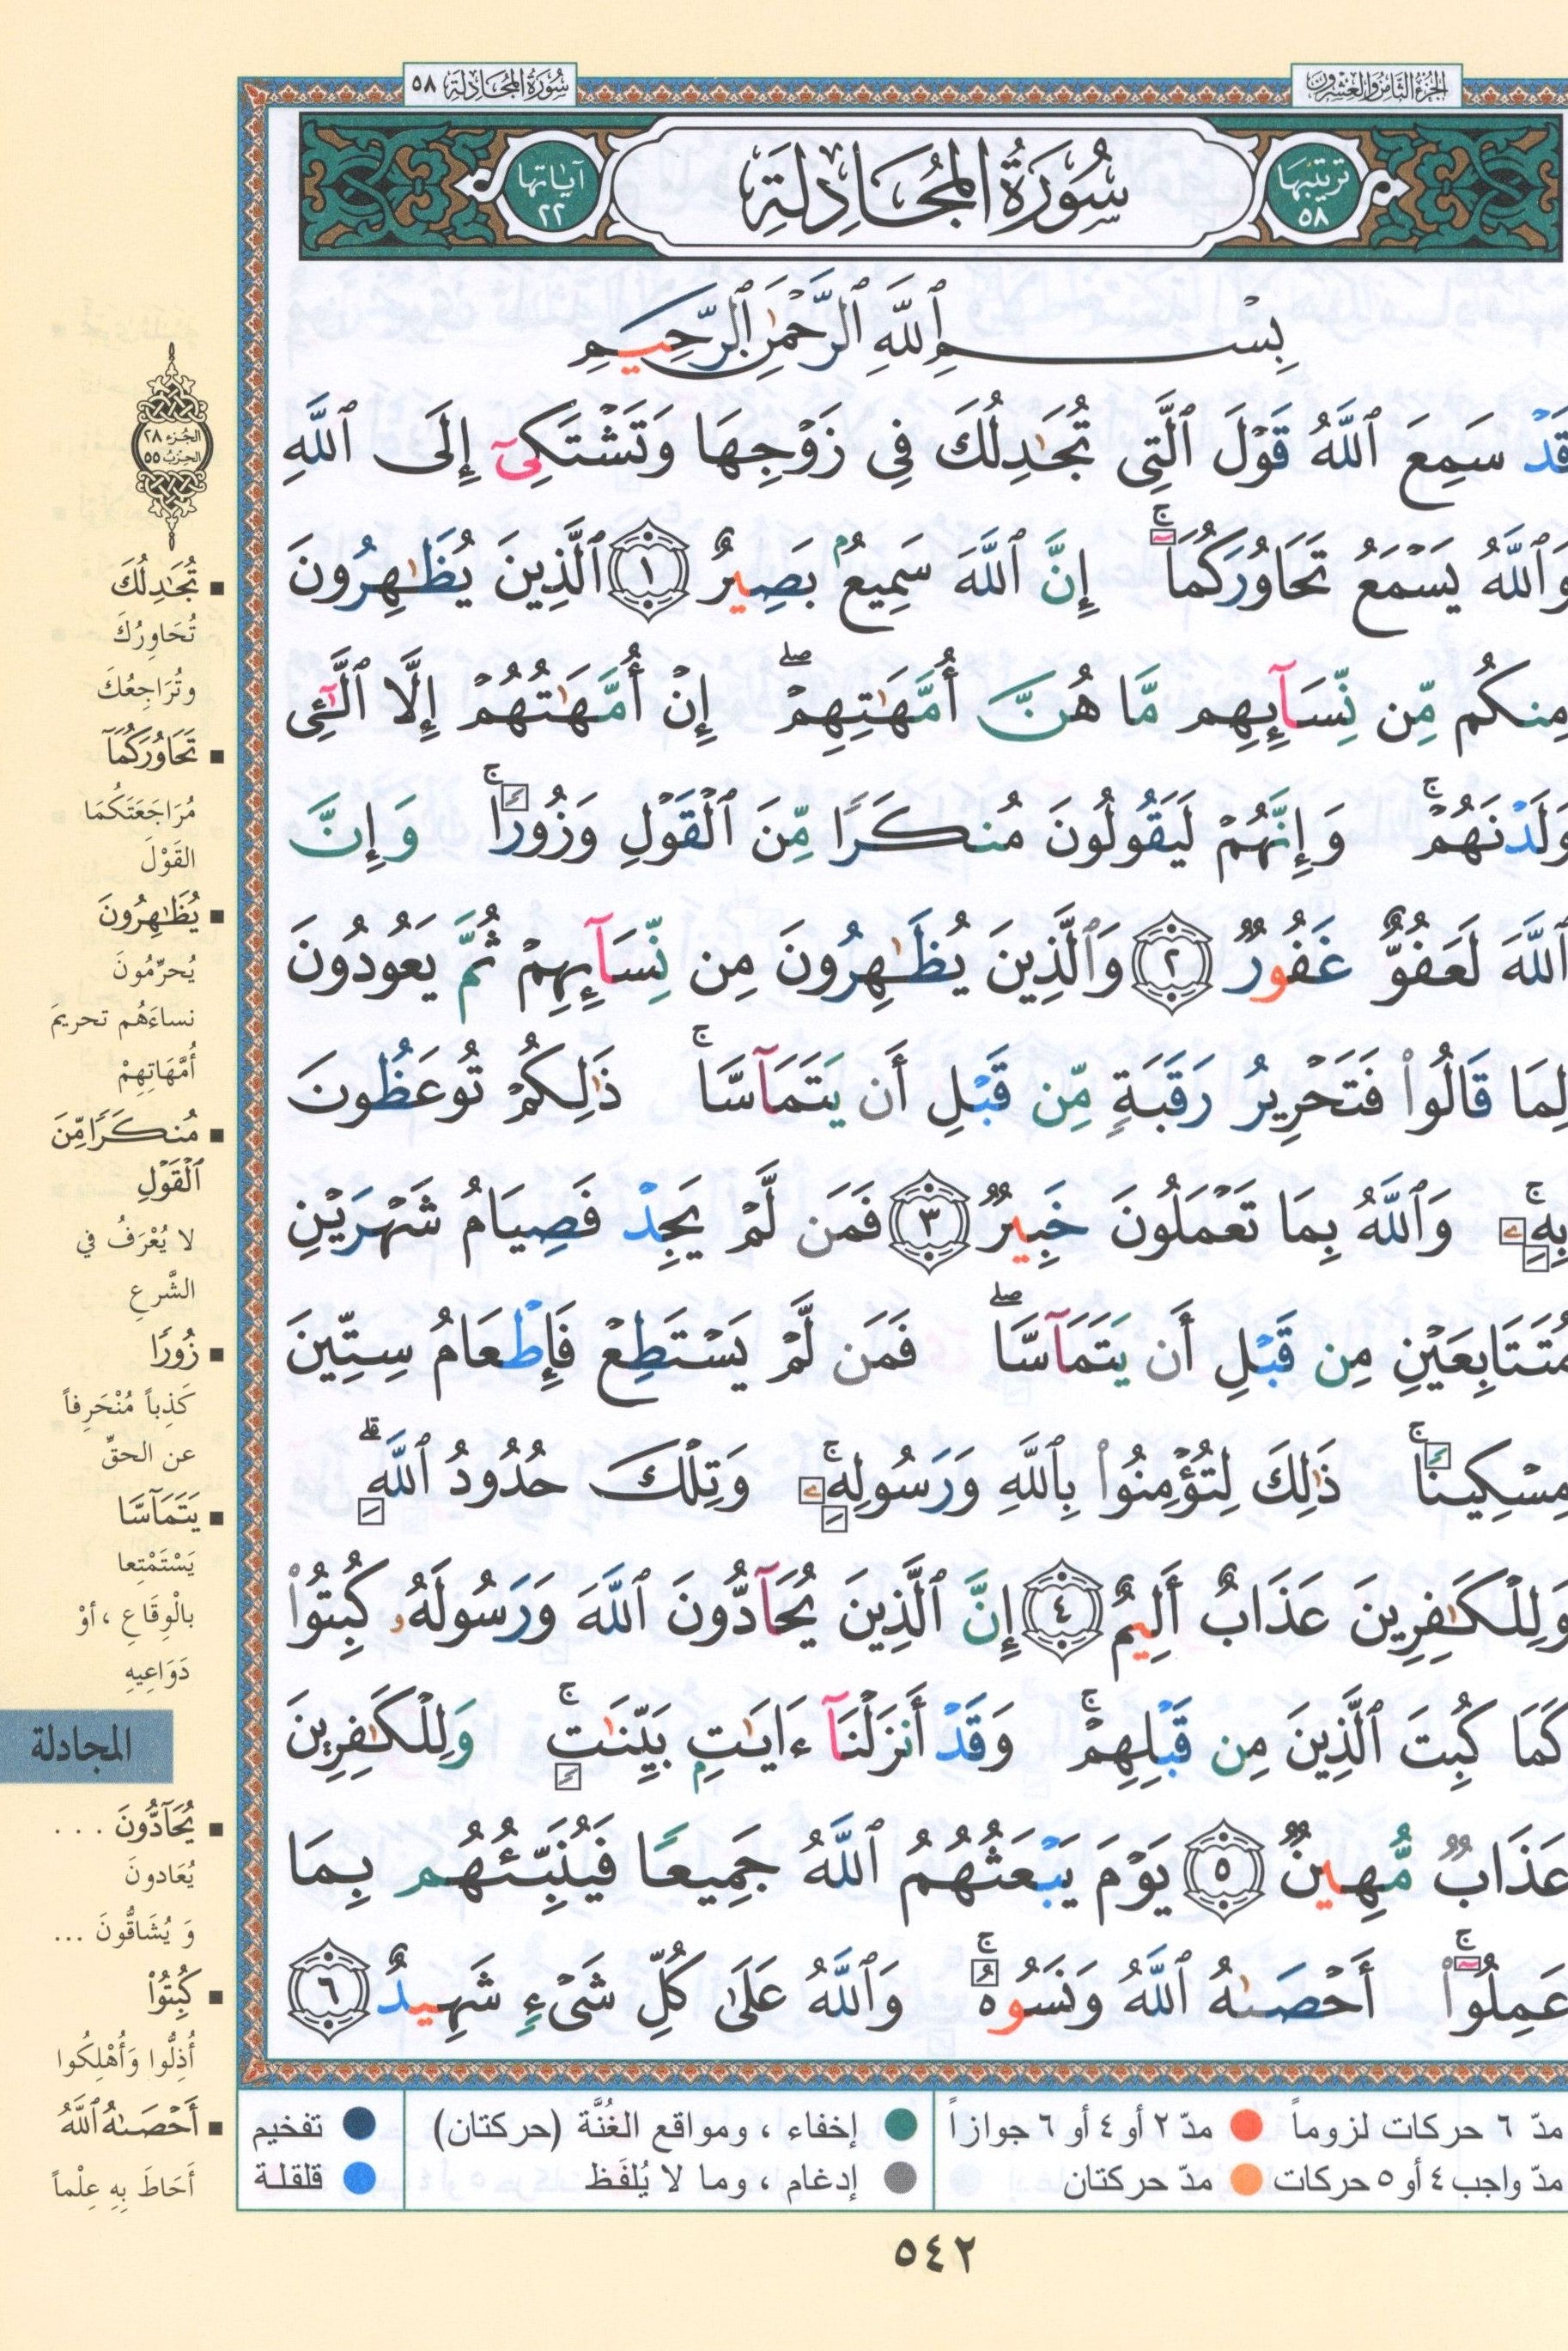 الجزء الثامن والعشرون
سورة المجادلة ٥٨
ترتيبها ٥٨
سُورَةُ المُجَادِلَةِ
آياتها ٢٢
بِسْمِ ٱللَّهِ ٱلرَّحْمَٰنِ ٱلرَّحِيمِ
قَدْ سَمِعَ ٱللَّهُ قَوْلَ ٱلَّتِى تُجَٰدِلُكَ فِى زَوْجِهَا وَتَشْتَكِىٓ إِلَى ٱللَّهِ
وَٱللَّهُ يَسْمَعُ تَحَاوُرَكُمَآ ۚ إِنَّ ٱللَّهَ سَمِيعٌۢ بَصِيرٌ ١ ٱلَّذِينَ يُظَٰهِرُونَ
مِنكُم مِّن نِّسَآئِهِم مَّا هُنَّ أُمَّهَٰتِهِمْ ۖ إِنْ أُمَّهَٰتُهُمْ إِلَّا ٱلَّٰٓـِٔى
وَلَدْنَهُمْ ۚ وَإِنَّهُمْ لَيَقُولُونَ مُنكَرًا مِّنَ ٱلْقَوْلِ وَزُورًا ۚ وَإِنَّ
ٱللَّهَ لَعَفُوٌّ غَفُورٌ ٢ وَٱلَّذِينَ يُظَٰهِرُونَ مِن نِّسَآئِهِمْ ثُمَّ يَعُودُونَ
لِمَا قَالُوا۟ فَتَحْرِيرُ رَقَبَةٍ مِّن قَبْلِ أَن يَتَمَآسَّا ۚ ذَٰلِكُمْ تُوعَظُونَ
بِهِۦ ۚ وَٱللَّهُ بِمَا تَعْمَلُونَ خَبِيرٌ ٣ فَمَن لَّمْ يَجِدْ فَصِيَامُ شَهْرَيْنِ
مُتَتَابِعَيْنِ مِن قَبْلِ أَن يَتَمَآسَّا ۖ فَمَن لَّمْ يَسْتَطِعْ فَإِطْعَامُ سِتِّينَ
مِسْكِينًا ۚ ذَٰلِكَ لِتُؤْمِنُوا۟ بِٱللَّهِ وَرَسُولِهِۦ ۚ وَتِلْكَ حُدُودُ ٱللَّهِ ۗ
وَلِلْكَٰفِرِينَ عَذَابٌ أَلِيمٌ ٤ إِنَّ ٱلَّذِينَ يُحَآدُّونَ ٱللَّهَ وَرَسُولَهُۥ كُبِتُوا۟
كَمَا كُبِتَ ٱلَّذِينَ مِن قَبْلِهِمْ ۚ وَقَدْ أَنزَلْنَآ ءَايَٰتٍۭ بَيِّنَٰتٍ ۚ وَلِلْكَٰفِرِينَ
عَذَابٌ مُّهِينٌ ٥ يَوْمَ يَبْعَثُهُمُ ٱللَّهُ جَمِيعًا فَيُنَبِّئُهُم بِمَا
عَمِلُوٓا۟ ۚ أَحْصَىٰهُ ٱللَّهُ وَنَسُوهُ ۚ وَٱللَّهُ عَلَىٰ كُلِّ شَىْءٍ شَهِيدٌ ٦
الجزء ٢٨
الحزب ٥٥
تُجَٰدِلُكَ
تُحَاوِرُكَ
وتُرَاجِعُكَ
تَحَاوُرَكُمَآ
مُرَاجَعَتَكُمَا
القَوْلَ
يُظَٰهِرُونَ
يُحرِّمُونَ
نساءَهُم تحريمَ
أُمَّهَاتِهِمْ
مُنكَرًا مِّنَ
ٱلْقَوْلِ
لا يُعْرَفُ في
الشَّرعِ
زُورًا
كَذِباً مُنْحَرِفاً
عن الحقِّ
يَتَمَآسَّا
يَسْتَمْتِعا
بالْوِقَاعِ ، أوْ
دَوَاعِيهِ
المجادلة
يُحَآدُّونَ . . .
يُعَادونَ
وَ يُشَاقُّونَ ...
كُبِتُوا۟
أُذِلُّوا وَأُهْلِكُوا
أَحْصَىٰهُ ٱللَّهُ
أَحَاطَ بِهِ عِلْماً
مدّ ٦ حركات لزوماً مدّ ٢ أو ٤ أو ٦ جوازاً
مدّ واجب ٤ أو ٥ حركات مدّ حركتان
إخفاء ، ومواقع الغُنَّة (حركتان)
إدغام ، وما لا يُلفَظ
تفخيم
قلقلة
٥٤٢